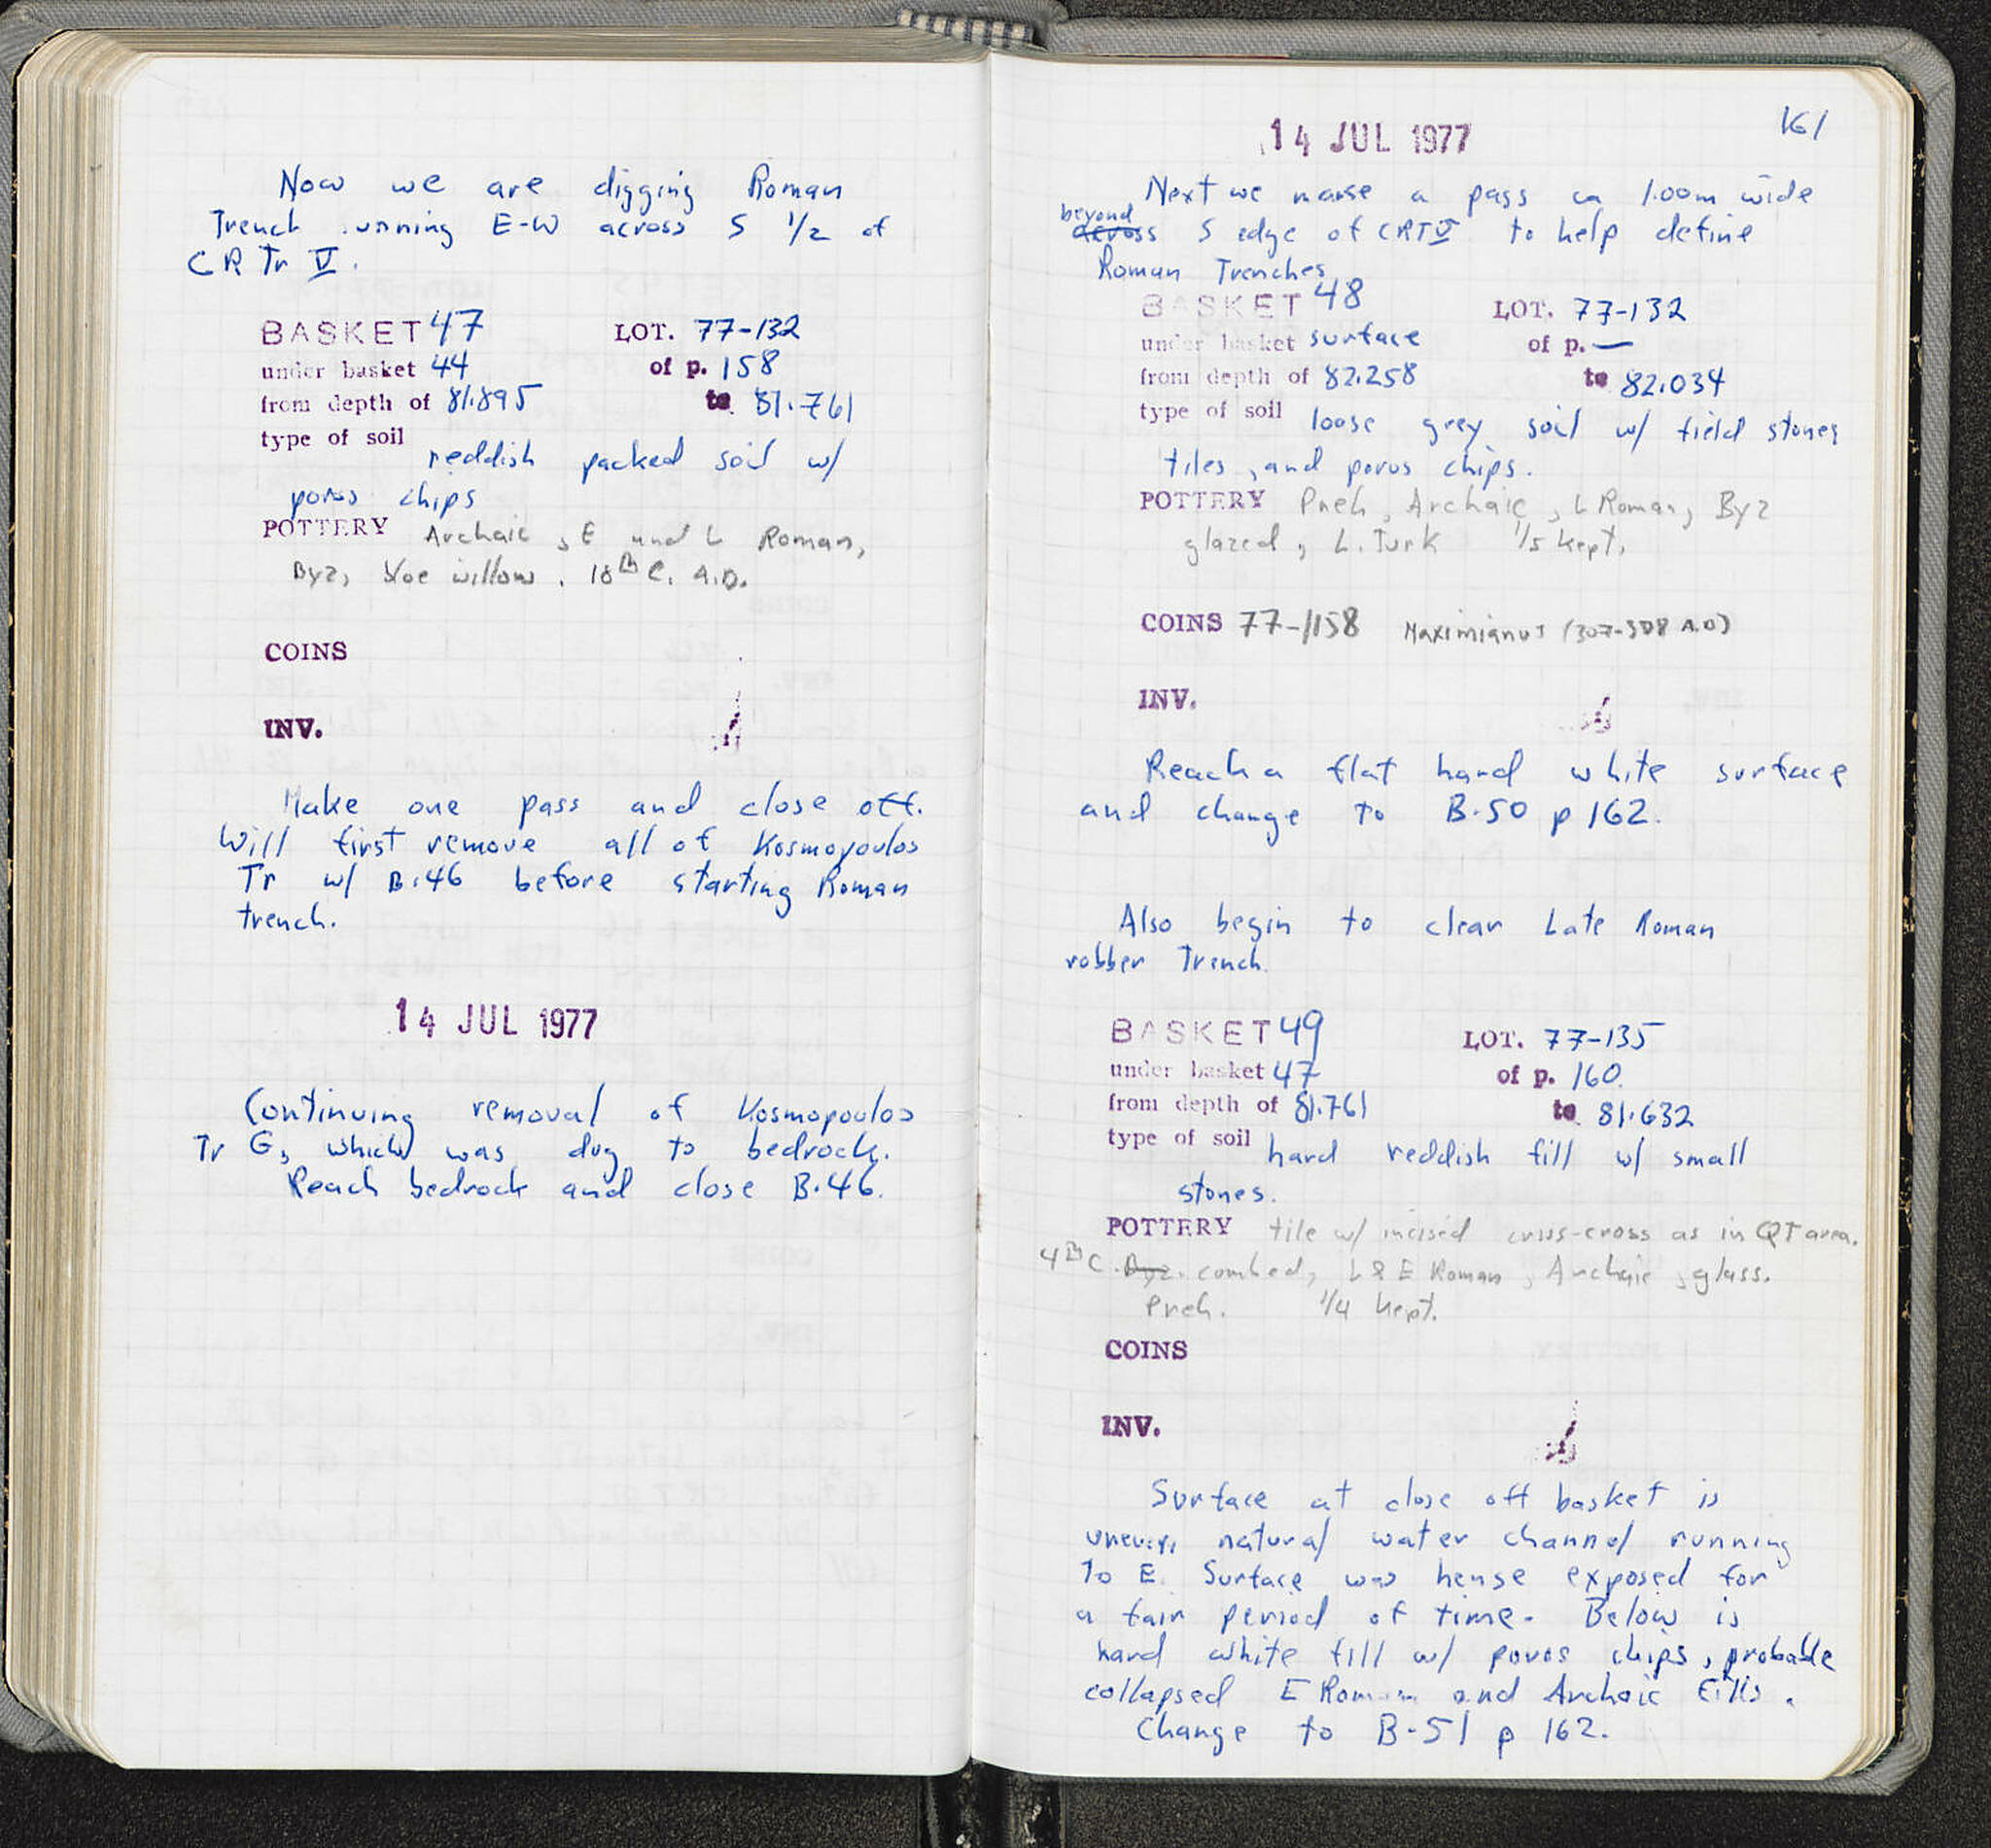 Now we are digging Roman
Trench running E-W across S 1/2 of
CR Tr V.
BASKET 47 LOT. 77-132
under basket 44 of p. 158
from depth of 81.895 to 81.761
type of soil
reddish packed soil w/
poros chips
POTTERY Archaic, E and L Roman,
Byz, blue willow. 18th C. A.D.
COINS
INV.
Make one pass and close off.
Will first remove all of Kosmopoulos
Tr w/ B.46 before starting Roman
trench.
14 JUL 1977
Continuing removal of Kosmopoulos
Tr G, which was dug to bedrock.
Reach bedrock and close B.46.
161
14 JUL 1977
Next we make a pass ca 1.00m wide
beyond
across S edge of CRT V to help define
Roman Trenches
BASKET 48 LOT. 77-132
under basket surface of p. —
from depth of 82.258 to 82.034
type of soil loose grey soil w/ field stones
tiles, and poros chips.
POTTERY Preh, Archaic, L Roman, Byz
glazed, L. Turk 1/5 kept.
COINS 77-1158 Maximianus (307-308 A.D)
INV.
Reach a flat hard white surface
and change to B.50 p 162.
Also begin to clear Late Roman
robber Trench.
BASKET 49 LOT. 77-135
under basket 47 of p. 160
from depth of 81.761 to 81.632
type of soil hard reddish fill w/ small
stones.
POTTERY tile w/ incised criss-cross as in QT area.
4th C. Byz. combed, L & E Roman, Archaic, glass.
Preh. 1/4 kept.
COINS
INV.
Surface at close off basket is
uneven, natural water channel running
To E. Surface was hense exposed for
a fair period of time. Below is
hard white fill w/ poros chips, probable
collapsed E Roman and Archaic fills.
Change to B-51 p 162.